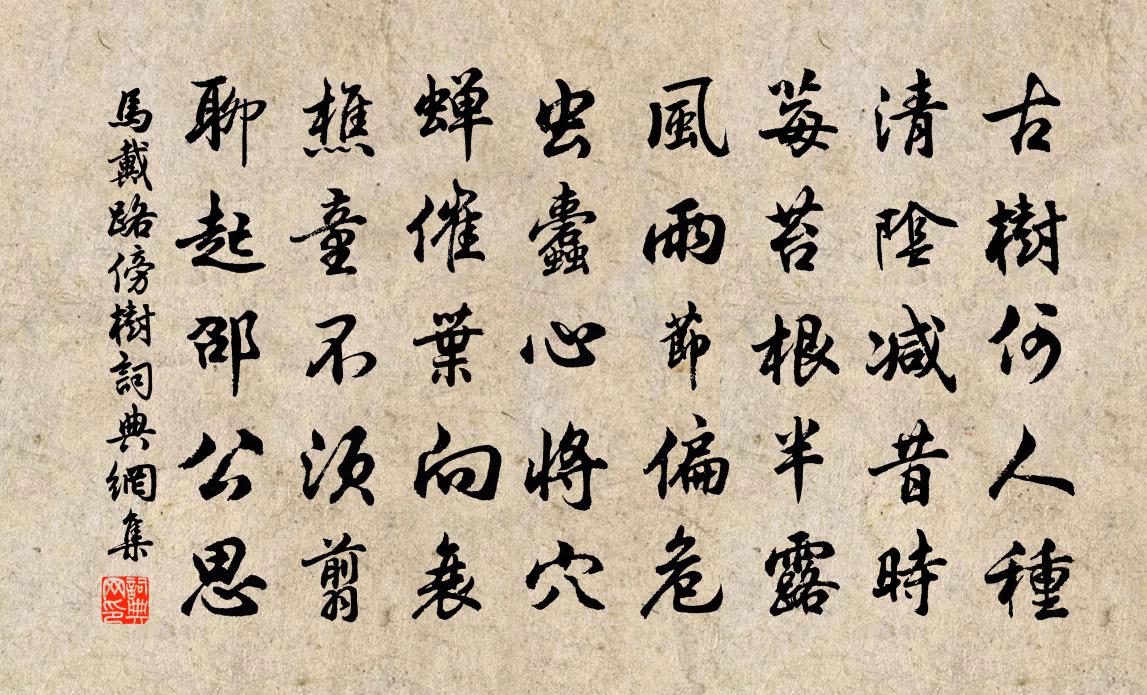 古樹何人種
清陰減昔時
莓苔根半露
風雨節偏危
虫蠹心將穴
蟬催葉向衰
樵童不須剪
聊起邵公思
馬戴路傍樹詞典網集
詞典網印